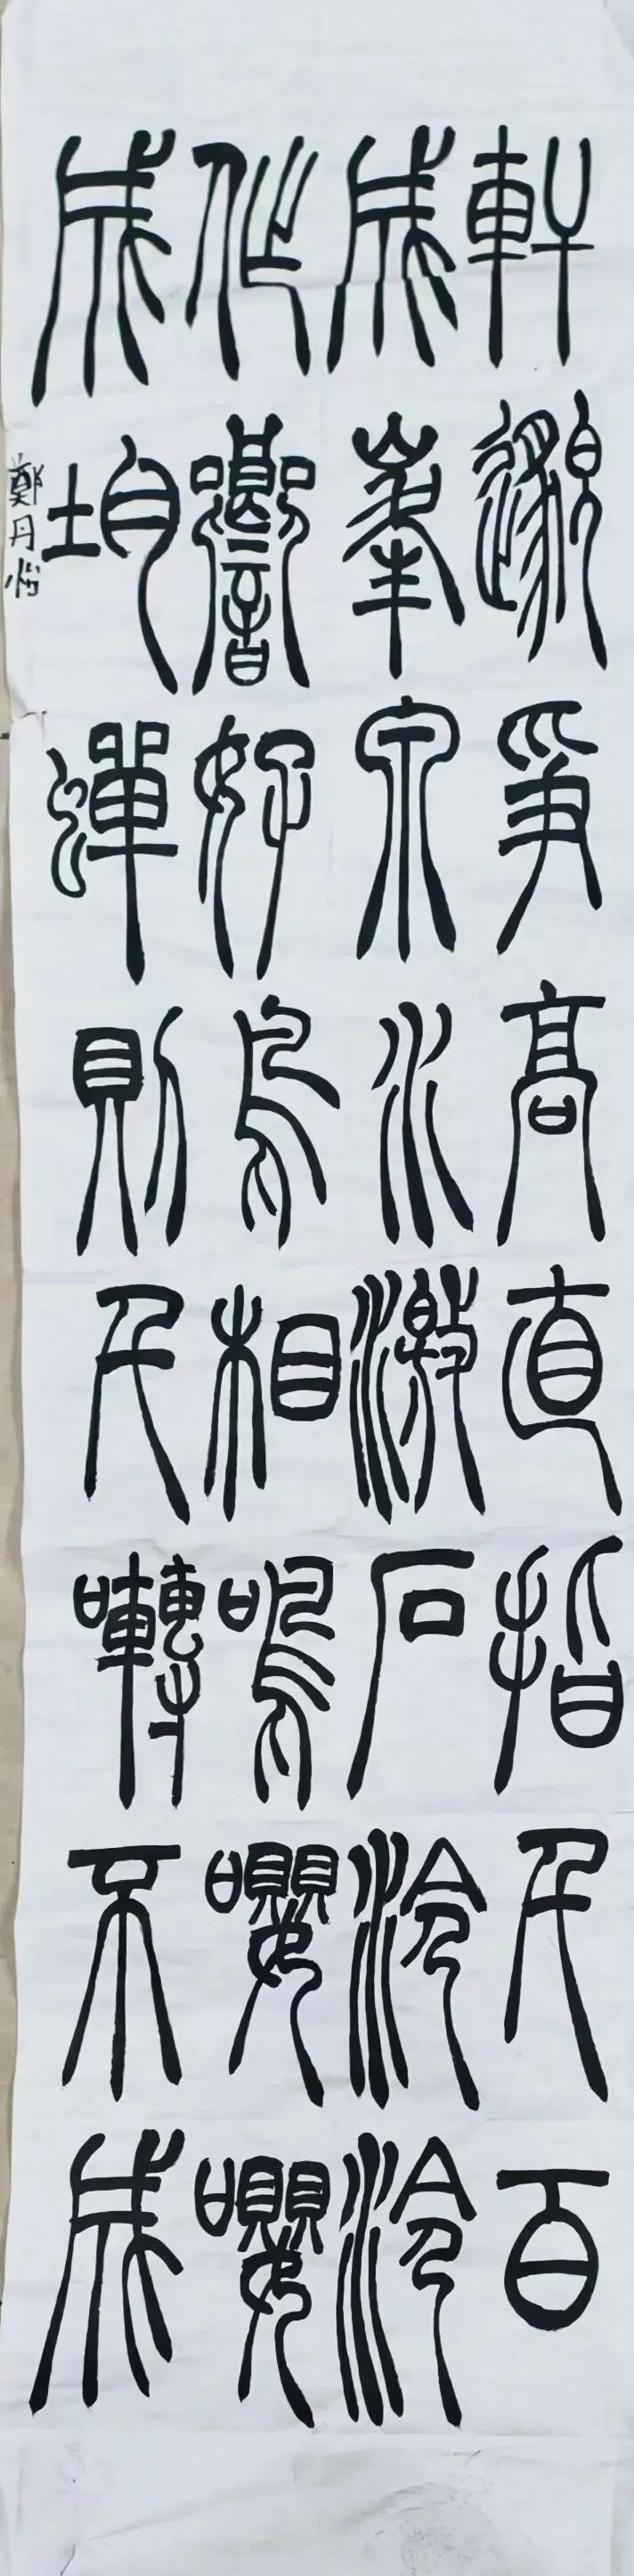 軒邈爭高直指千百
成峯泉水激石泠泠
作響好鳥相鳴嚶嚶
成均蟬則千囀不成
鄭丹